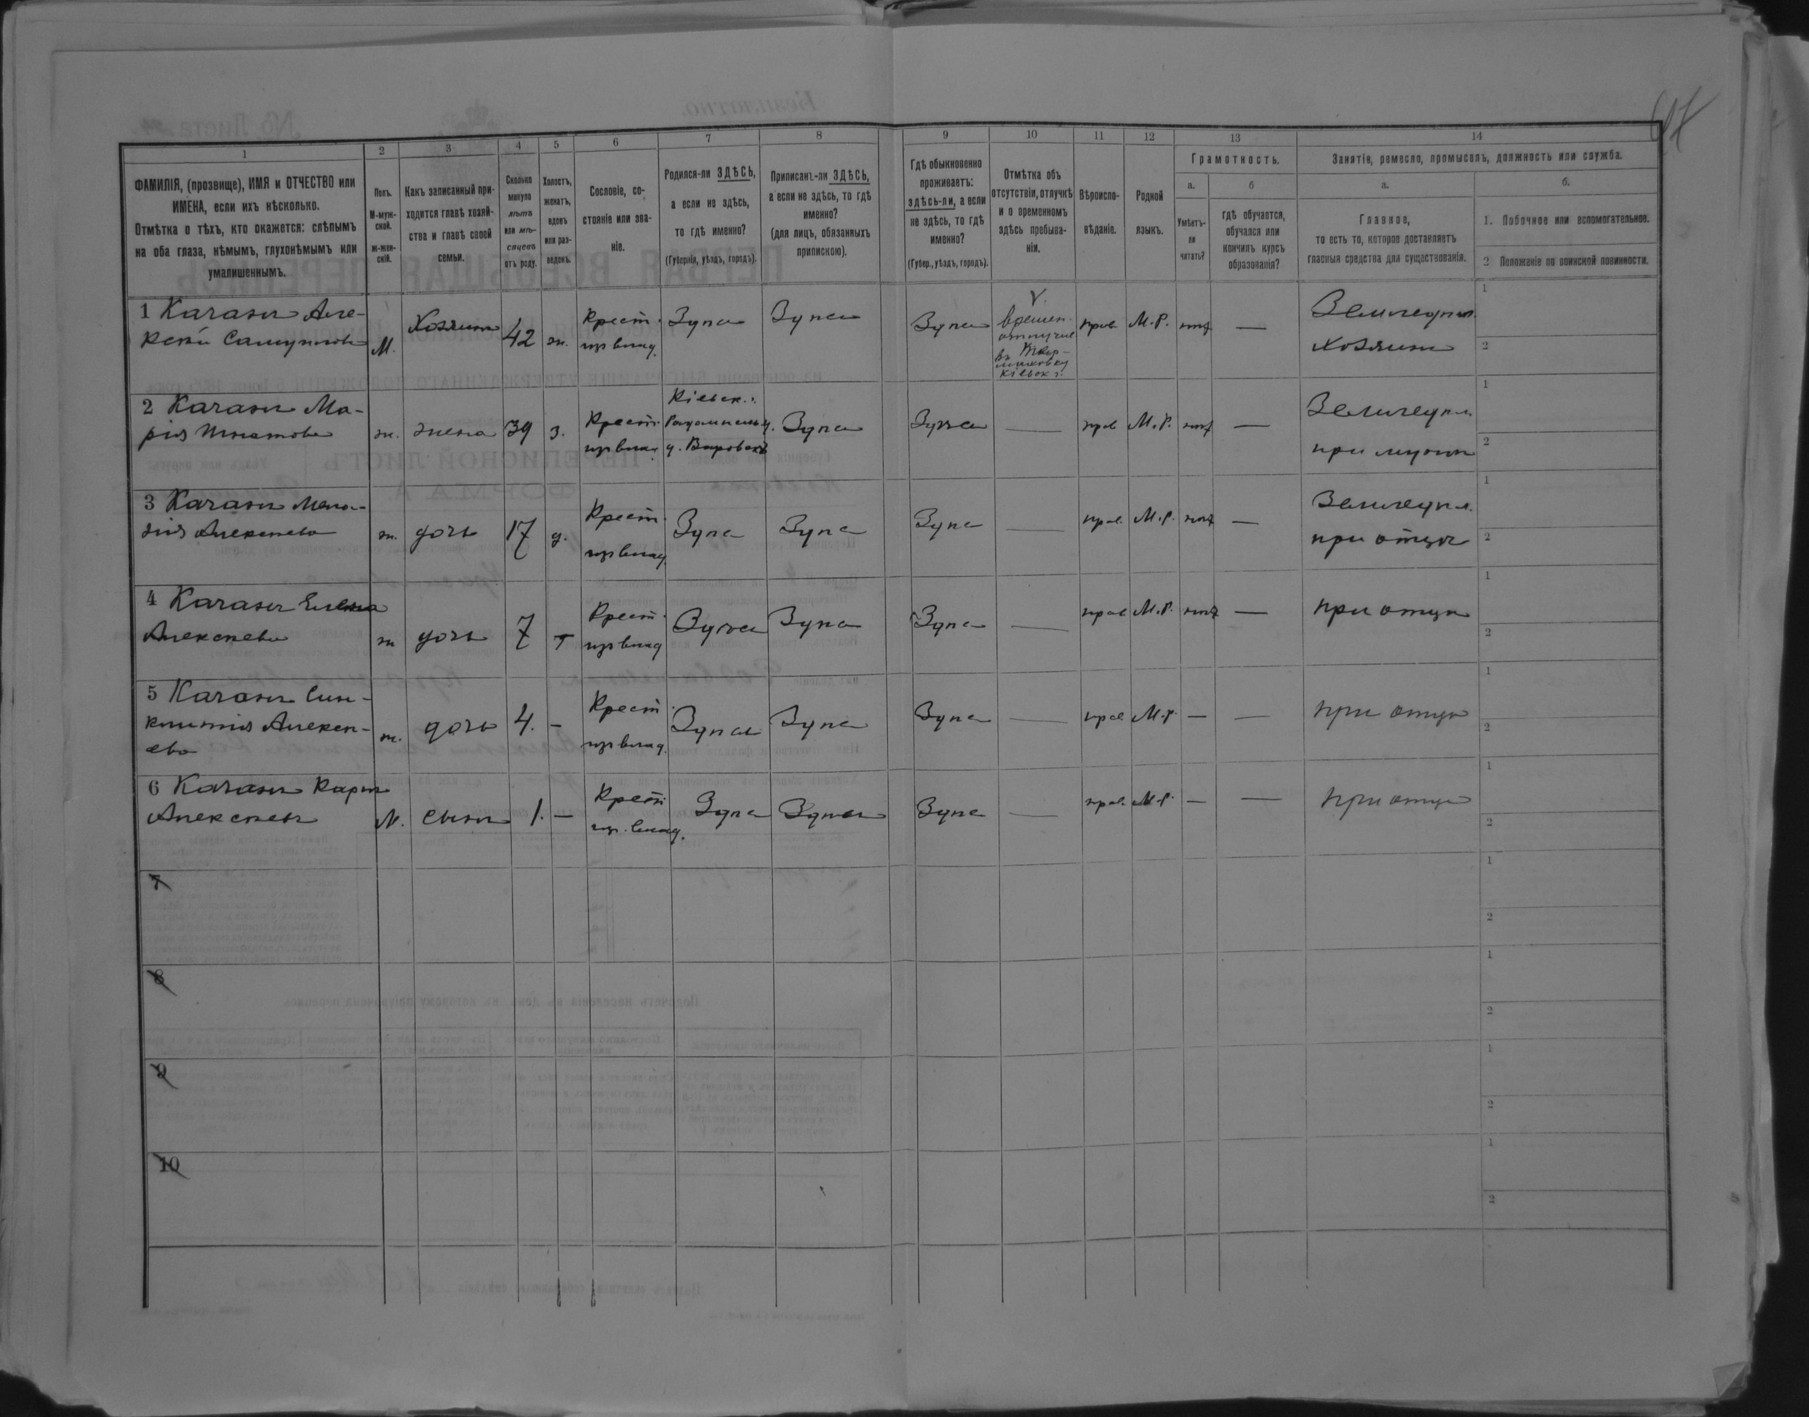 1 2 3 4 5 6 7 8 9 10 11 12 13 14
ФАМИЛІЯ, (прозвище), ИМЯ и ОТЧЕСТВО или
ИМЕНА, если ихъ нѣсколько.
Отмѣтка о тѣхъ, кто окажется: слѣпымъ
на оба глаза, нѣмымъ, глухонѣмымъ или
умалишеннымъ.
Полъ.
М-муж-
ской.
ж-жен-
скій.
Какъ записанный при-
ходится главѣ хозяй-
ства и главѣ своей
семьи.
Сколько
минуло
лѣтъ
или мѣ-
сяцевъ
отъ роду.
Холостъ,
женатъ,
вдовъ
или раз-
веденъ.
Сословіе, со-
стояніе или зва-
ніе.
Родился-ли ЗДѢСЬ,
а если не здѣсь,
то гдѣ именно?
(Губернія, уѣздъ, городъ).
Приписанъ-ли ЗДѢСЬ,
а если не здѣсь, то гдѣ
именно?
(для лицъ, обязанныхъ
припискою).
Гдѣ обыкновенно
проживаетъ:
здѣсь-ли, а если
не здѣсь, то гдѣ
именно?
(Губер., уѣздъ, городъ).
Отмѣтка объ
отсутствіи, отлучкѣ
и о временномъ
здѣсь пребыва-
ніи.
Вѣроиспо-
вѣданіе.
Родной
языкъ.
Грамотность.
а.
Умѣетъ-
ли
читать?
б
гдѣ обучается,
обучался или
кончилъ курсъ
образованія?
Занятіе, ремесло, промыселъ, должность или служба.
а.
Главное,
то есть то, которое доставляетъ
главныя средства для существованія.
б.
1. Побочное или вспомогательное.
2 Положеніе по воинской повинности.
1 Качанъ Але-
ксѣй Самуиловъ М. Хозяинъ 42 ж. Крест. изъ влад. Здѣсь Здѣсь Здѣсь времен. прав. М.Р. нѣт — Земледѣл. хозяинъ
2 Качанъ Ма-
рія Игнатова ж. жена 39 з. Крест. изъ влад. Кіевск. Здѣсь Здѣсь — прав М.Р. нѣт — Земледѣл. при мужѣ
3 Качанъ
Алексѣева ж. дочь 17 д. Крест. изъ влад. Здѣсь Здѣсь Здѣсь — прав М.Р. нѣт — Земледѣл. при отцѣ
4 Качанъ Елена
Алексѣева ж дочь 7 Крест. изъ влад Здѣсь Здѣсь Здѣсь — прав М.Р. нѣт — при отцѣ
5 Качанъ Син-
клитія Алексѣ-
ева ж. дочь 4. — Крест. изъ влад. Здѣсь Здѣсь Здѣсь — прав М.Р. — — при отцѣ
6 Качанъ Карпъ
Алексѣевъ М. сынъ 1. — Крест. из. влад. Здѣсь Здѣсь Здѣсь — прав. М.Р. — — при отцѣ
7
8
9
10